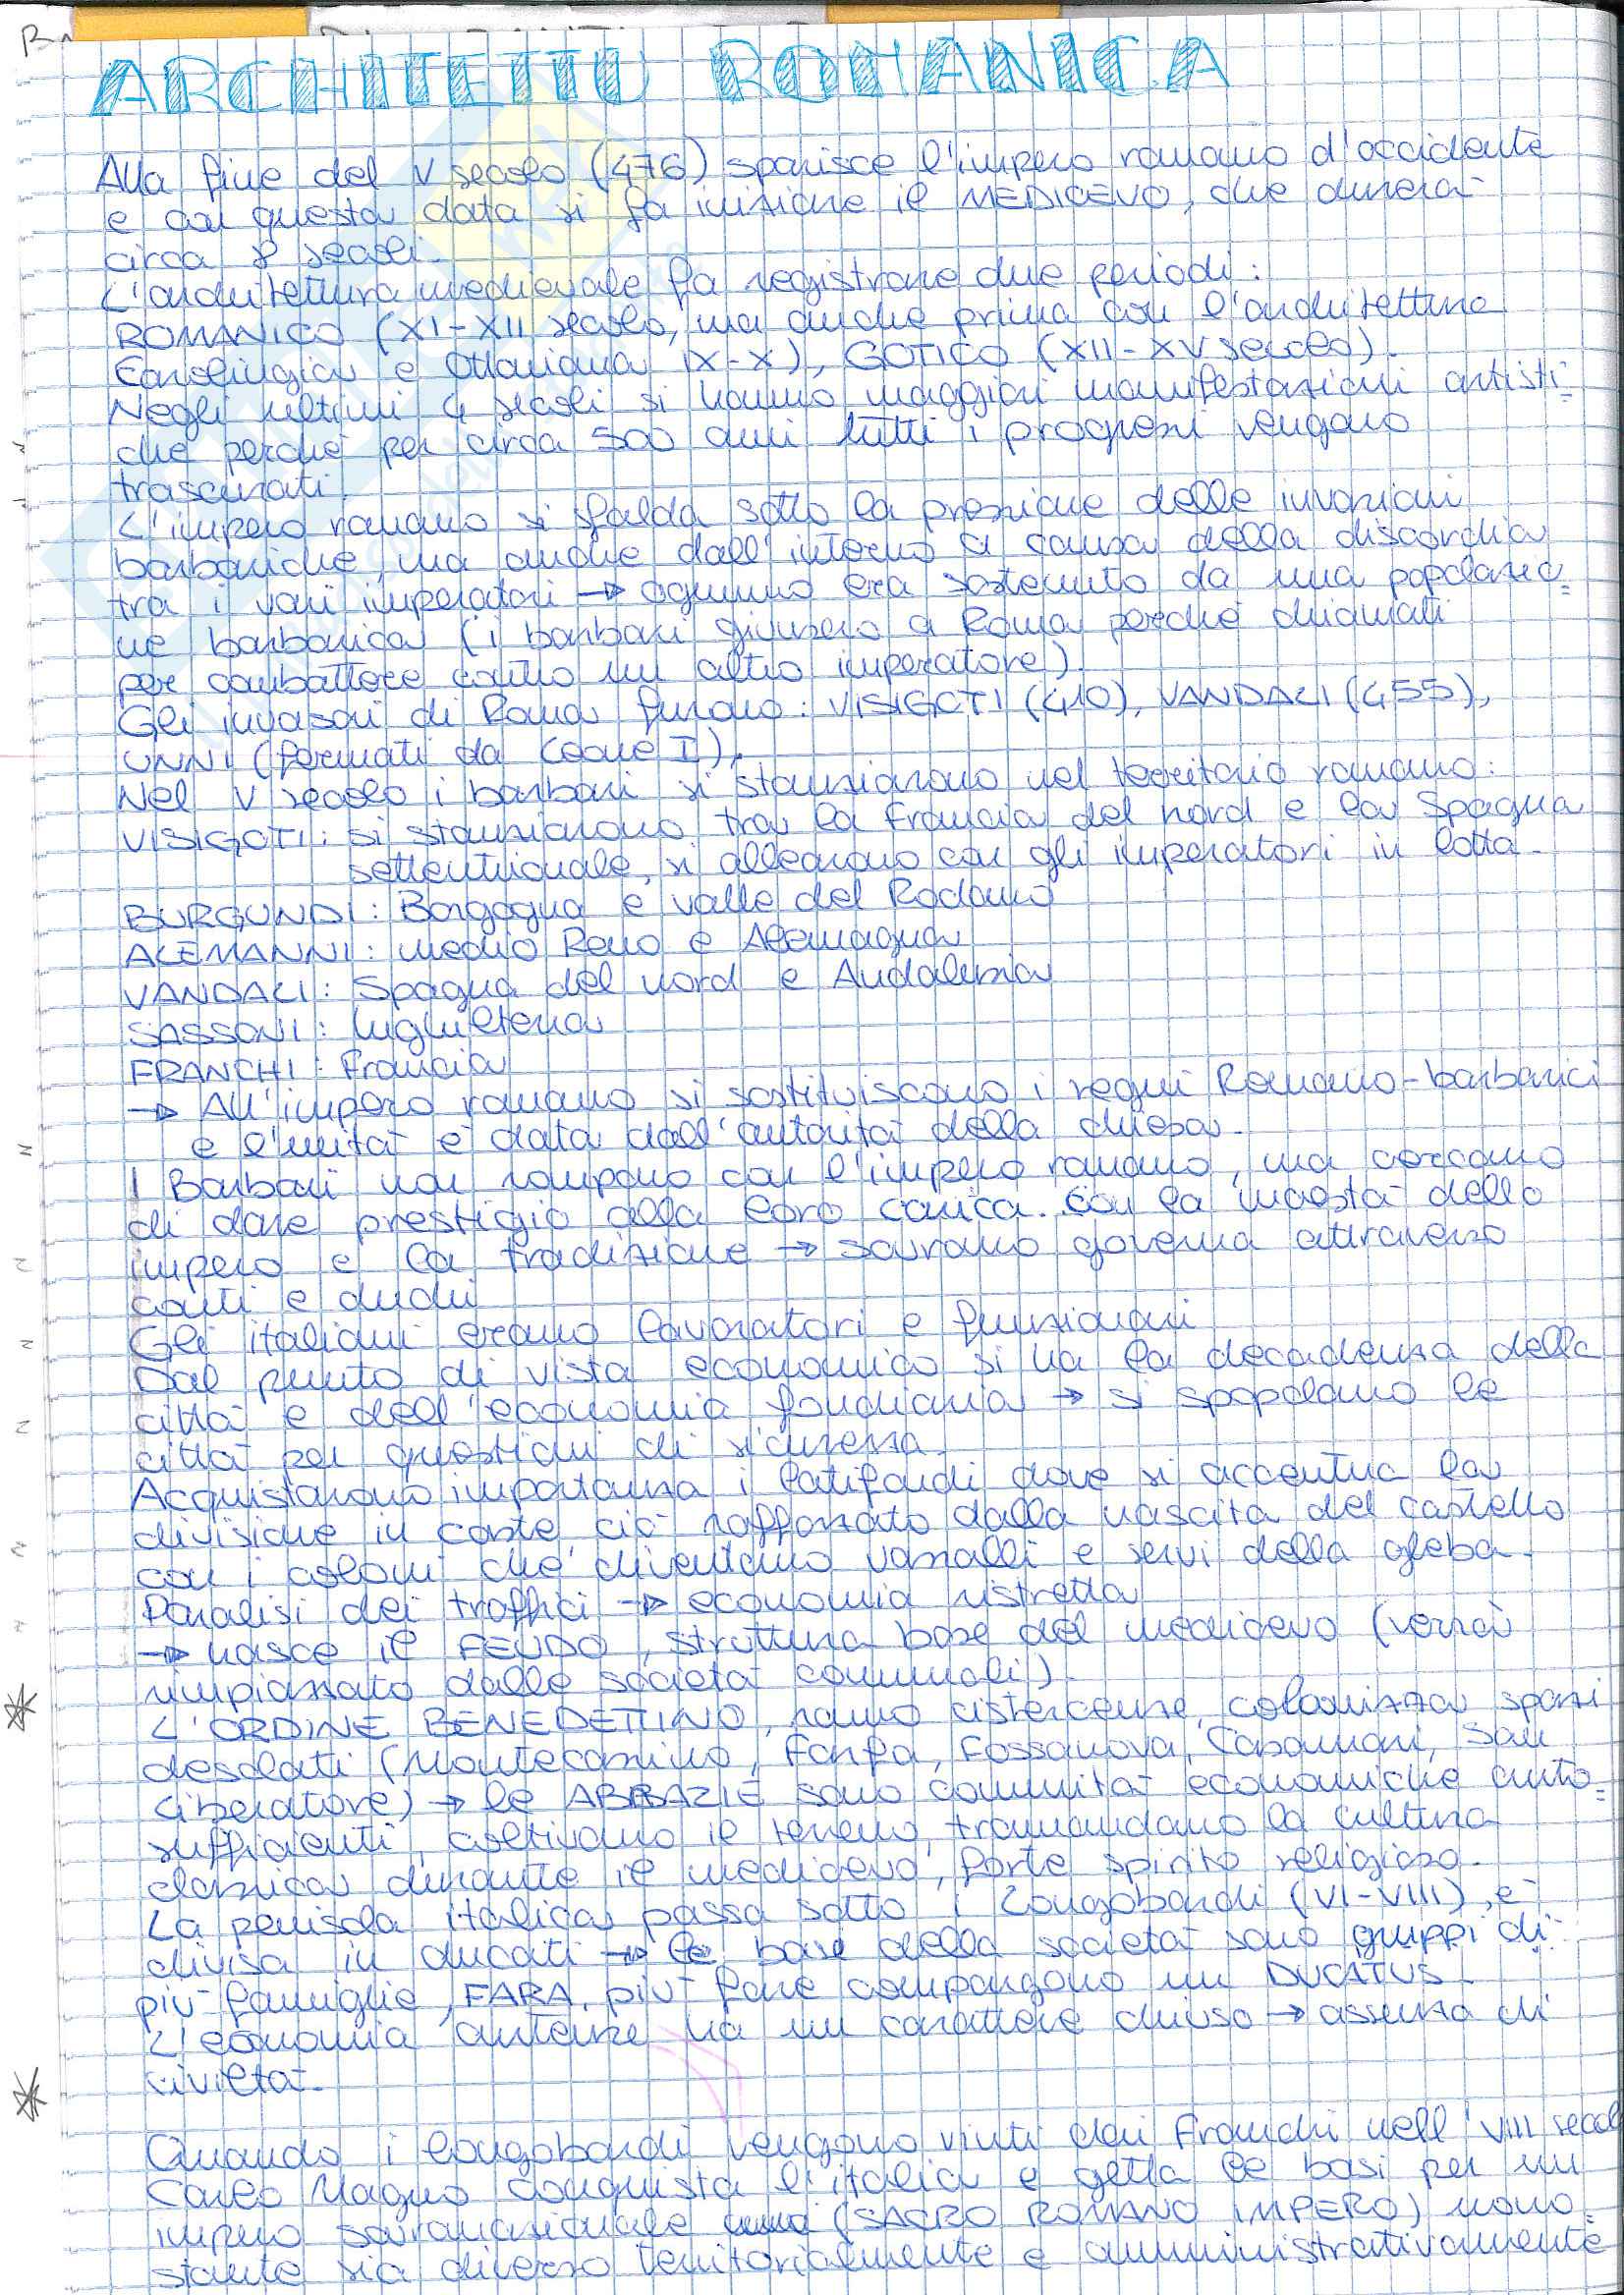 ARCHITETTU ROMANICA
Alla fine del V secolo (476) sparisce l'impero romano d'occidente
e con questa data si fa iniziare il MEDIOEVO, che durerà
circa 8 secoli.
L'architettura medievale fa registrare due periodi:
ROMANICO (XI-XII secolo, ma anche prima con l'architettura
Carolingia e Ottoniana IX-X), GOTICO (XII-XV secolo).
Negli ultimi 4 secoli si hanno maggiori manifestazioni artisti=
che perché per circa 500 anni tutti i progressi vengono
trascurati.
L'impero romano si sfalda sotto la pressione delle invasioni
barbariche, ma anche dall'interno a causa della discordia
tra i vari imperatori → ognuno era sostenuto da una popolazio=
ne barbarica (i barbari giunsero a Roma perché chiamati
per combattere contro un altro imperatore).
Gli invasori di Roma furono: VISIGOTI (410), VANDALI (455),
UNNI (fermati da Leone I).
Nel V secolo i barbari si stanziarono nel territorio romano:
VISIGOTI: si stanziarono tra la Francia del nord e la Spagna
settentrionale, si allearono con gli imperatori in lotta.
BURGUNDI: Borgogna e valle del Rodano
ALEMANNI: medio Reno e Alemagna
VANDALI: Spagna del nord e Andalusia
SASSONI: Inghilterra
FRANCHI: Francia
→ All'impero romano si sostituiscono i regni Romano-barbarici
e l'unità è data dall'autorità della chiesa.
I Barbari non rompono con l'impero romano, ma cercano
di dare prestigio alla loro carica con la maestà dello
impero e la tradizione → sovrano governa attraverso
conti e duchi
Gli italiani erano lavoratori e funzionari
Dal punto di vista economico si ha la decadenza della
città e dell'economia fondiaria → si spopolano le
città per questioni di sicurezza.
Acquistarono importanza i latifondi dove si accentua la
divisione in caste, ciò rafforzato dalla nascita del castello
con i coloni che diventano vassalli e servi della gleba.
Paralisi dei traffici → economia ristretta
→ nasce il FEUDO, struttura base del medioevo (verrà
rimpiazzato dalle società comunali).
L'ORDINE BENEDETTINO, ramo cistercense, colonizza spazi
desolati (Montecassino, Farfa, Fossanova, Casamari, San
Liberatore) → le ABBAZIE sono comunità economiche auto=
sufficienti, coltivano il terreno, tramandano la cultura
classica durante il medioevo, forte spirito religioso.
La penisola italica passa sotto i Longobardi (VI-VIII), è
divisa in ducati → le base della società sono gruppi di
più famiglie, FARA, più fare compongono un DUCATUS.
L'economia curtense ha un carattere chiuso → assenza di
civiltà.
Quando i longobardi vengono vinti dai Franchi nell'VIII secol
Carlo Magno conquista l'italia e getta le basi per un
impero sovranazionale (SACRO ROMANO IMPERO) nono=
stante sia diverso territorialmente e amministrativamente